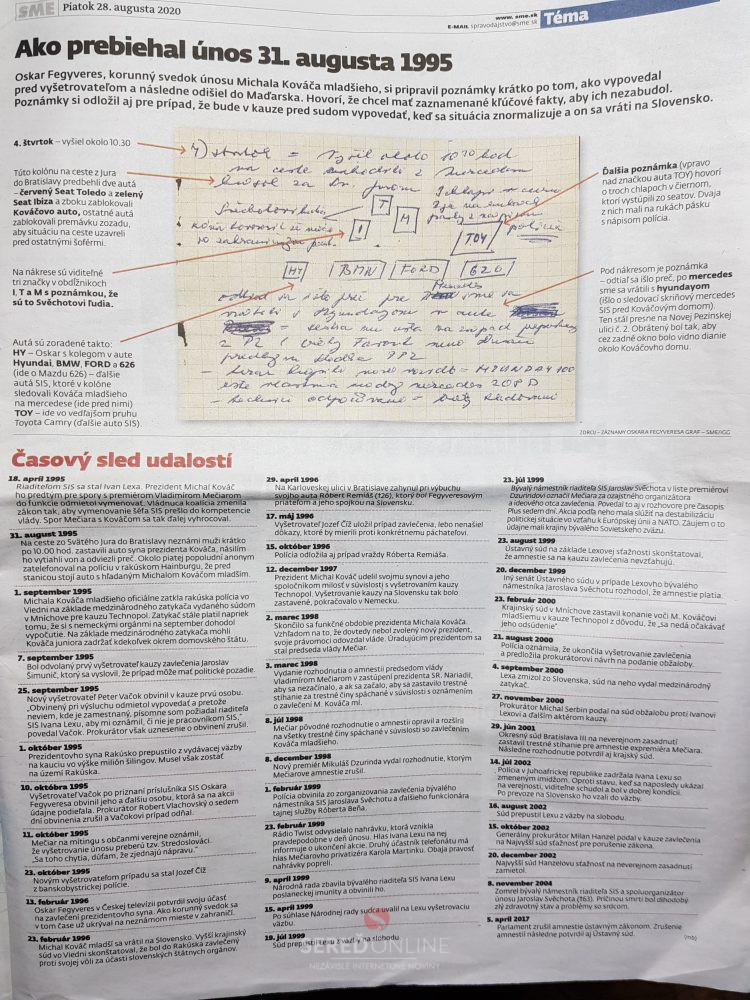 SME Piatok 28. augusta 2020
www.sme.sk
E-MAIL spravodajstvo@sme.sk
Téma
Ako prebiehal únos 31. augusta 1995
Oskar Fegyveres, korunný svedok únosu Michala Kováča mladšieho, si pripravil poznámky krátko po tom, ako vypovedal
pred vyšetrovateľom a následne odišiel do Maďarska. Hovorí, že chcel mať zaznamenané kľúčové fakty, aby ich nezabudol.
Poznámky si odložil aj pre prípad, že bude v kauze pred sudom vypovedať, keď sa situácia znormalizuje a on sa vráti na Slovensko.
4. štvrtok – vyšiel okolo 10.30
Túto kolónu na ceste z Jura
do Bratislavy predbehli dve autá
– červený Seat Toledo a zelený
Seat Ibiza a zboku zablokovali
Kováčovo auto, ostatné autá
zablokovali premávku zozadu,
aby situáciu na ceste uzavreli
pred ostatnými šoférmi.
Na nákrese sú viditeľné
tri značky v obdĺžnikoch
I, T a M s poznámkou, že
sú to Svěchotovi ľudia.
Autá sú zoradené takto:
HY – Oskar s kolegom v aute
Hyundai, BMW, FORD a 626
(ide o Mazdu 626) – ďalšie
autá SIS, ktoré v kolóne
sledovali Kováča mladšieho
na mercedese (ide pred nimi)
TOY – ide vo vedľajšom pruhu
Toyota Camry (ďalšie auto SIS).
4) štvrtok = vyšiel okolo 10³⁰ hod
na ceste
T
M
I
TOY
HY
BMW
FORD
626
Ďalšia poznámka (vpravo
nad značkou auta TOY) hovorí
o troch chlapoch v čiernom,
ktorí vystúpili zo seatov. Dvaja
z nich mali na rukách pásku
s nápisom polícia.
Pod nákresom je poznámka
– odtiaľ sa išlo preč, po mercedes
sme sa vrátili s hyundayom
(išlo o sledovací skriňový mercedes
SIS pred Kováčovým domom).
Ten stál presne na Novej Pezinskej
ulici č. 2. Obrátený bol tak, aby
cez zadné okno bolo vidno dianie
okolo Kováčovho domu.
ZDROJ – ZÁZNAMY OSKARA FEGYVERESA GRAF – SME/IGG
Časový sled udalostí
18. apríl 1995
Riaditeľom SIS sa stal Ivan Lexa. Prezident Michal Kováč
ho predtým pre spory s premiérom Vladimírom Mečiarom
do funkcie odmietol vymenovať. Vládnuca koalícia zmenila
zákon tak, aby vymenovanie šéfa SIS prešlo do kompetencie
vlády. Spor Mečiara s Kováčom sa tak ďalej vyhrocoval.
31. august 1995
Na ceste zo Svätého Jura do Bratislavy neznámi muži krátko
po 10.00 hod. zastavili auto syna prezidenta Kováča, násilím
ho vytiahli von a odviezli preč. Okolo piatej popoludní anonym
zatelefonoval na políciu v rakúskom Hainburgu, že pred
stanicou stojí auto s hľadaným Michalom Kováčom mladším.
1. september 1995
Michala Kováča mladšieho oficiálne zatkla rakúska polícia vo
Viedni na základe medzinárodného zatykača vydaného súdom
v Mníchove pre kauzu Technopol. Zatykač stále platil napriek
tomu, že si s nemeckými orgánmi na september dohodol
vypočutie. Na základe medzinárodného zatykača mohli
Kováča juniora zadržať kdekoľvek okrem domovského štátu.
7. september 1995
Bol odvolaný prvý vyšetrovateľ kauzy zavlečenia Jaroslav
Šimunič, ktorý sa vyslovil, že prípad môže mať politické pozadie.
25. september 1995
Nový vyšetrovateľ Peter Vačok obvinil v kauze prvú osobu.
„Obvinený pri výsluchu odmietol vypovedať a pretože
neviem, kde je zamestnaný, písomne som požiadal riaditeľa
SIS Ivana Lexu, aby mi oznámil, či nie je pracovníkom SIS,“
povedal Vačok. Prokurátor však uznesenie o obvinení zrušil.
1. október 1995
Prezidentovho syna Rakúsko prepustilo z vydávacej väzby
na kauciu vo výške milión šilingov. Musel však zostať
na území Rakúska.
10. októbra 1995
Vyšetrovateľ Vačok po priznaní príslušníka SIS Oskara
Fegyveresa obvinil jeho a ďalšiu osobu, ktorá sa na akcii
údajne podieľala. Prokurátor Robert Vlachovský o sedem
dní obvinenia zrušil a Vačkovi prípad odňal.
11. október 1995
Mečiar na mítingu s občanmi verejne oznámil,
že vyšetrovanie únosu preberú tzv. Stredoslováci.
„Sa toho chytia, dúfam, že zjednajú nápravu.“
23. október 1995
Novým vyšetrovateľom prípadu sa stal Jozef Číž
z banskobystrickej polície.
13. február 1996
Oskar Fegyveres v Českej televízii potvrdil svoju účasť
na zavlečení prezidentovho syna. Ako korunný svedok sa
v tom čase už ukrýval na neznámom mieste v zahraničí.
23. február 1996
Michal Kováč mladší sa vrátil na Slovensko. Vyšší krajinský
súd vo Viedni skonštatoval, že bol do Rakúska zavlečený
proti svojej vôli za účasti slovenských štátnych orgánov.
29. apríl 1996
Na Karloveskej ulici v Bratislave zahynul pri výbuchu
svojho auta Róbert Remiáš (†26), ktorý bol Fegyveresovým
priateľom a jeho spojkou s okolím.
17. máj 1996
Vyšetrovateľ Jozef Číž uložil prípad zavlečenia, lebo nenašiel
dôkazy, ktoré by mierili proti konkrétnemu páchateľovi.
15. október 1996
Polícia odložila aj prípad vraždy Róberta Remiáša.
12. december 1997
Prezident Michal Kováč udelil svojmu synovi a jeho
spoločníkom milosť v súvislosti s vyšetrovaním kauzy
Technopol. Vyšetrovanie kauzy na Slovensku tak bolo
zastavené, pokračovalo v Nemecku.
2. marec 1998
Skončilo sa funkčné obdobie prezidenta Michala Kováča.
Vzhľadom na to, že dovtedy nebol zvolený nový prezident,
svoje právomoci odovzdal vláde. Úradujúcim prezidentom sa
stal predseda vlády Mečiar.
3. marec 1998
Vydanie rozhodnutia o amnestii predsedom vlády
Vladimírom Mečiarom v zastúpení prezidenta SR. Nariadil,
aby sa nezačínalo, a ak sa začalo, aby sa zastavilo trestné
stíhanie za trestné činy spáchané v súvislosti s oznámením
o zavlečení M. Kováča ml.
8. júl 1998
Mečiar pôvodné rozhodnutie o amnestii opravil a rozšíril
na všetky trestné činy spáchané v súvislosti so zavlečením
Kováča mladšieho.
8. december 1998
Nový premiér Mikuláš Dzurinda vydal rozhodnutie, ktorým
Mečiarove amnestie zrušil.
1. február 1999
Polícia obvinila zo zorganizovania zavlečenia bývalého
námestníka SIS Jaroslava Svěchotu a ďalšieho funkcionára
tajnej služby Róberta Beňa.
23. február 1999
Rádio Twist odvysielalo nahrávku, ktorá vznikla
pravdepodobne v deň únosu. Hlas Ivana Lexu na nej
informuje o ukončení akcie. Druhý účastník telefonátu má
hlas Mečiarovho privatizéra Karola Martinku. Obaja pravosť
nahrávky popreli.
9. apríl 1999
Národná rada zbavila bývalého riaditeľa SIS Ivana Lexu
poslaneckej imunity a obvinili ho.
15. apríl 1999
Po súhlase Národnej rady sudca uvalil na Lexu vyšetrovaciu
väzbu.
19. júl 1999
Súd prepustil Lexu z väzby na slobodu.
23. júl 1999
Bývalý námestník riaditeľa SIS Jaroslav Svěchota v liste premiérovi
Dzurindovi označil Mečiara za ozajstného organizátora
a ideového otca zavlečenia. Povedal to aj v rozhovore pre časopis
Plus sedem dní. Akcia podľa neho mala slúžiť na destabilizáciu
politickej situácie vo vzťahu k Európskej únii a NATO. Záujem o to
údajne mali krajiny bývalého Sovietskeho zväzu.
23. august 1999
Ústavný súd na základe Lexovej sťažnosti skonštatoval,
že amnestie sa na kauzu zavlečenia nevzťahujú.
20. december 1999
Iný senát Ústavného súdu v prípade Lexovho bývalého
námestníka Jaroslava Svěchotu rozhodol, že amnestie platia.
23. február 2000
Krajinský súd v Mníchove zastavil konanie voči M. Kováčovi
mladšiemu v kauze Technopol z dôvodu, že „sa nedá očakávať
jeho odsúdenie“.
21. august 2000
Polícia oznámila, že ukončila vyšetrovanie zavlečenia
a predložila prokurátorovi návrh na podanie obžaloby.
4. september 2000
Lexa zmizol zo Slovenska, súd na neho vydal medzinárodný
zatykač.
27. november 2000
Prokurátor Michal Serbin podal na súd obžalobu proti Ivanovi
Lexovi a ďalším aktérom kauzy.
29. jún 2001
Okresný súd Bratislava III na neverejnom zasadnutí
zastavil trestné stíhanie pre amnestie expremiéra Mečiara.
Rozhodnutie následne potvrdil aj krajský súd.
14. júl 2002
Polícia v Juhoafrickej republike zadržala Ivana Lexu so
zmeneným imidžom. Oproti stavu, keď sa naposledy ukázal
na verejnosti, viditeľne schudol a bol v dobrej kondícii.
Po prevoze na Slovensko ho vzali do väzby.
16. august 2002
Súd prepustil Lexu z väzby na slobodu.
15. október 2002
Generálny prokurátor Milan Hanzel podal v kauze zavlečenia
na Najvyšší súd sťažnosť pre porušenie zákona.
20. december 2002
Najvyšší súd Hanzelovu sťažnosť na neverejnom zasadnutí
zamietol.
8. november 2004
Zomrel bývalý námestník riaditeľa SIS a spoluorganizátor
únosu Jaroslav Svěchota (†63). Príčinou smrti bol dlhodobý
zlý zdravotný stav a problémy so srdcom.
5. apríl 2017
Parlament zrušil amnestie ústavným zákonom. Zrušenie
amnestií následne potvrdil aj Ústavný súd.
(mb)
SEREĎ ONLINE
NEZÁVISLÉ INTERNETOVÉ NOVINY